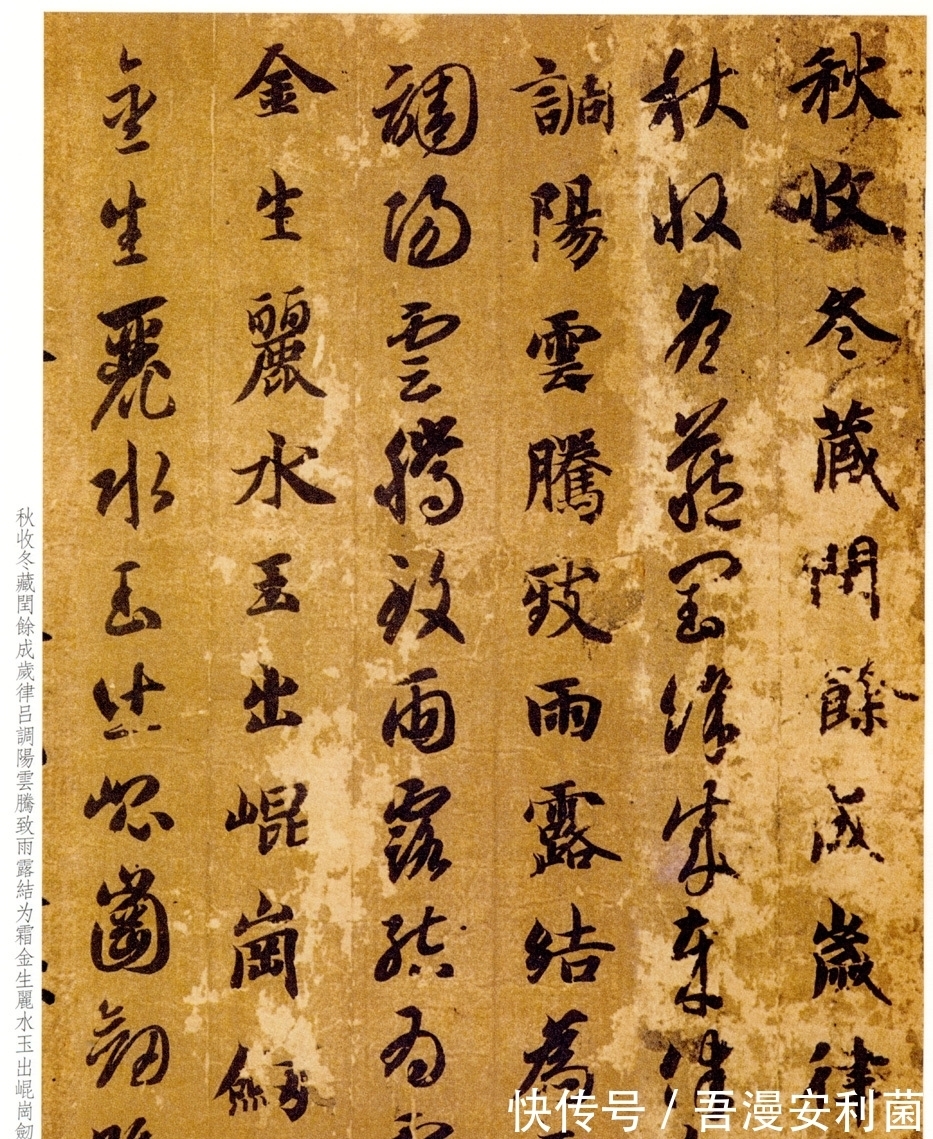 秋收冬藏閏餘成歲律
秋收冬藏閏餘成歲律
調陽雲騰致雨露結為
調陽雲騰致雨露結為
金生麗水玉出崐崗劔
金生麗水玉出崐崗劔
秋收冬藏閏餘成歲律吕調陽雲騰致雨露結为霜金生麗水玉出崐崗劔
快传号 / 吾漫安利菌